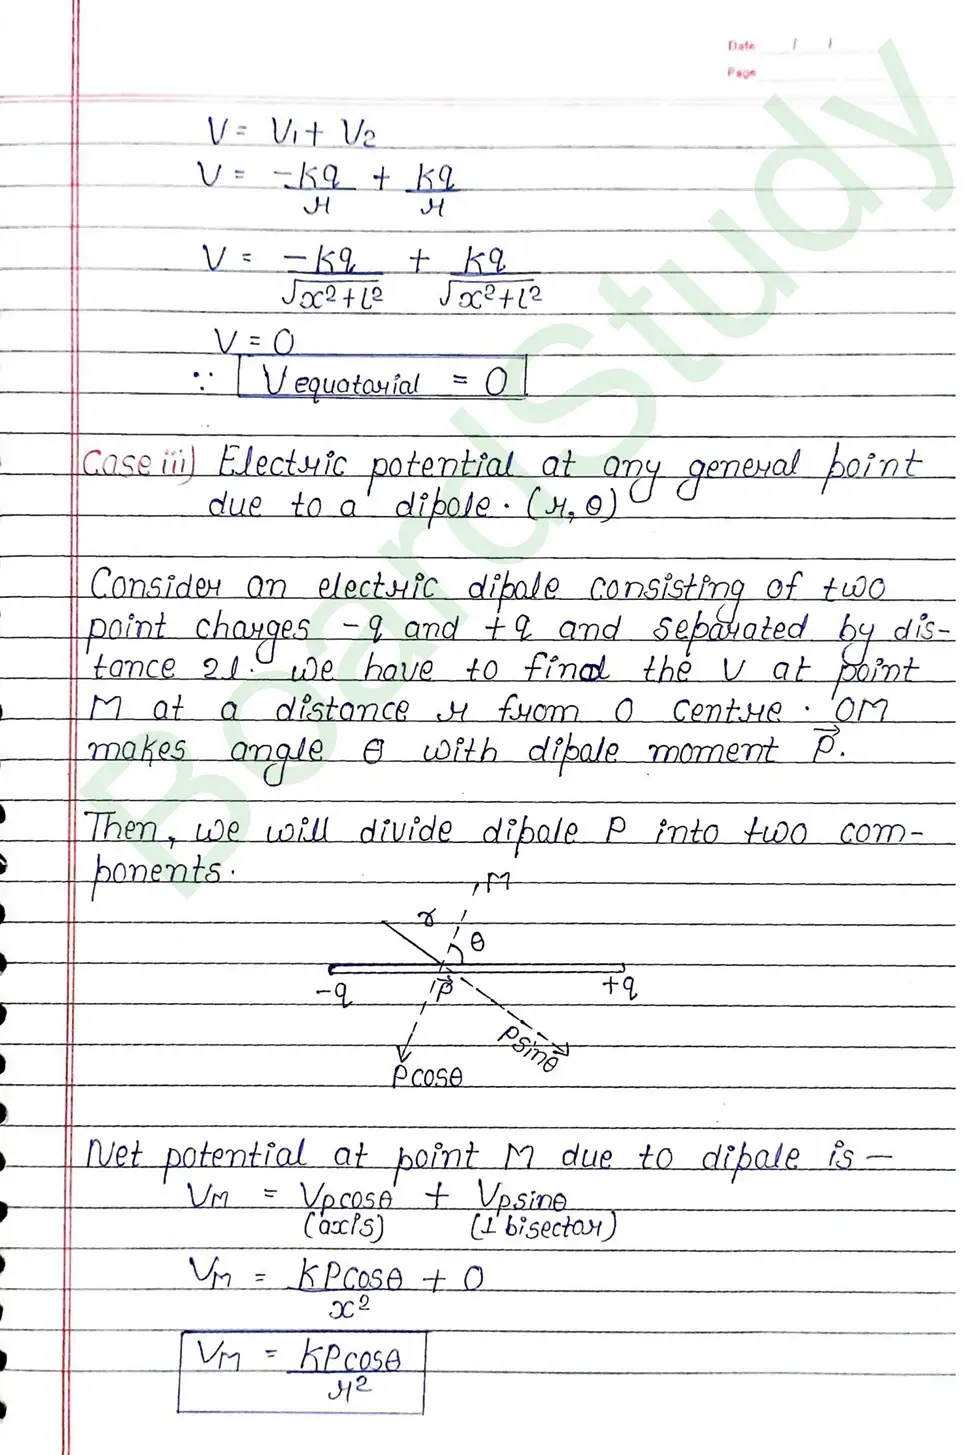 Date / /
Page
V = V₁ + V₂
V = -Kq/r + Kq/r
V = -Kq/√x²+l² + Kq/√x²+l²
V = 0
∵ V equatorial = 0
Case iii) Electric potential at any general point
due to a dipole. (r, θ)
Consider an electric dipole consisting of two
point charges -q and +q and separated by dis-
tance 2l. we have to find the V at point
M at a distance r from O centre. OM
makes angle θ with dipole moment P⃗.
Then, we will divide dipole P into two com-
ponents.
M
r
θ
-q P⃗ +q
Psinθ
Pcosθ
Net potential at point M due to dipole is —
VM = Vpcosθ + Vpsinθ
(axis) (⊥ bisector)
VM = KPcosθ/x² + 0
VM = KPcosθ/r²
BoardStudy